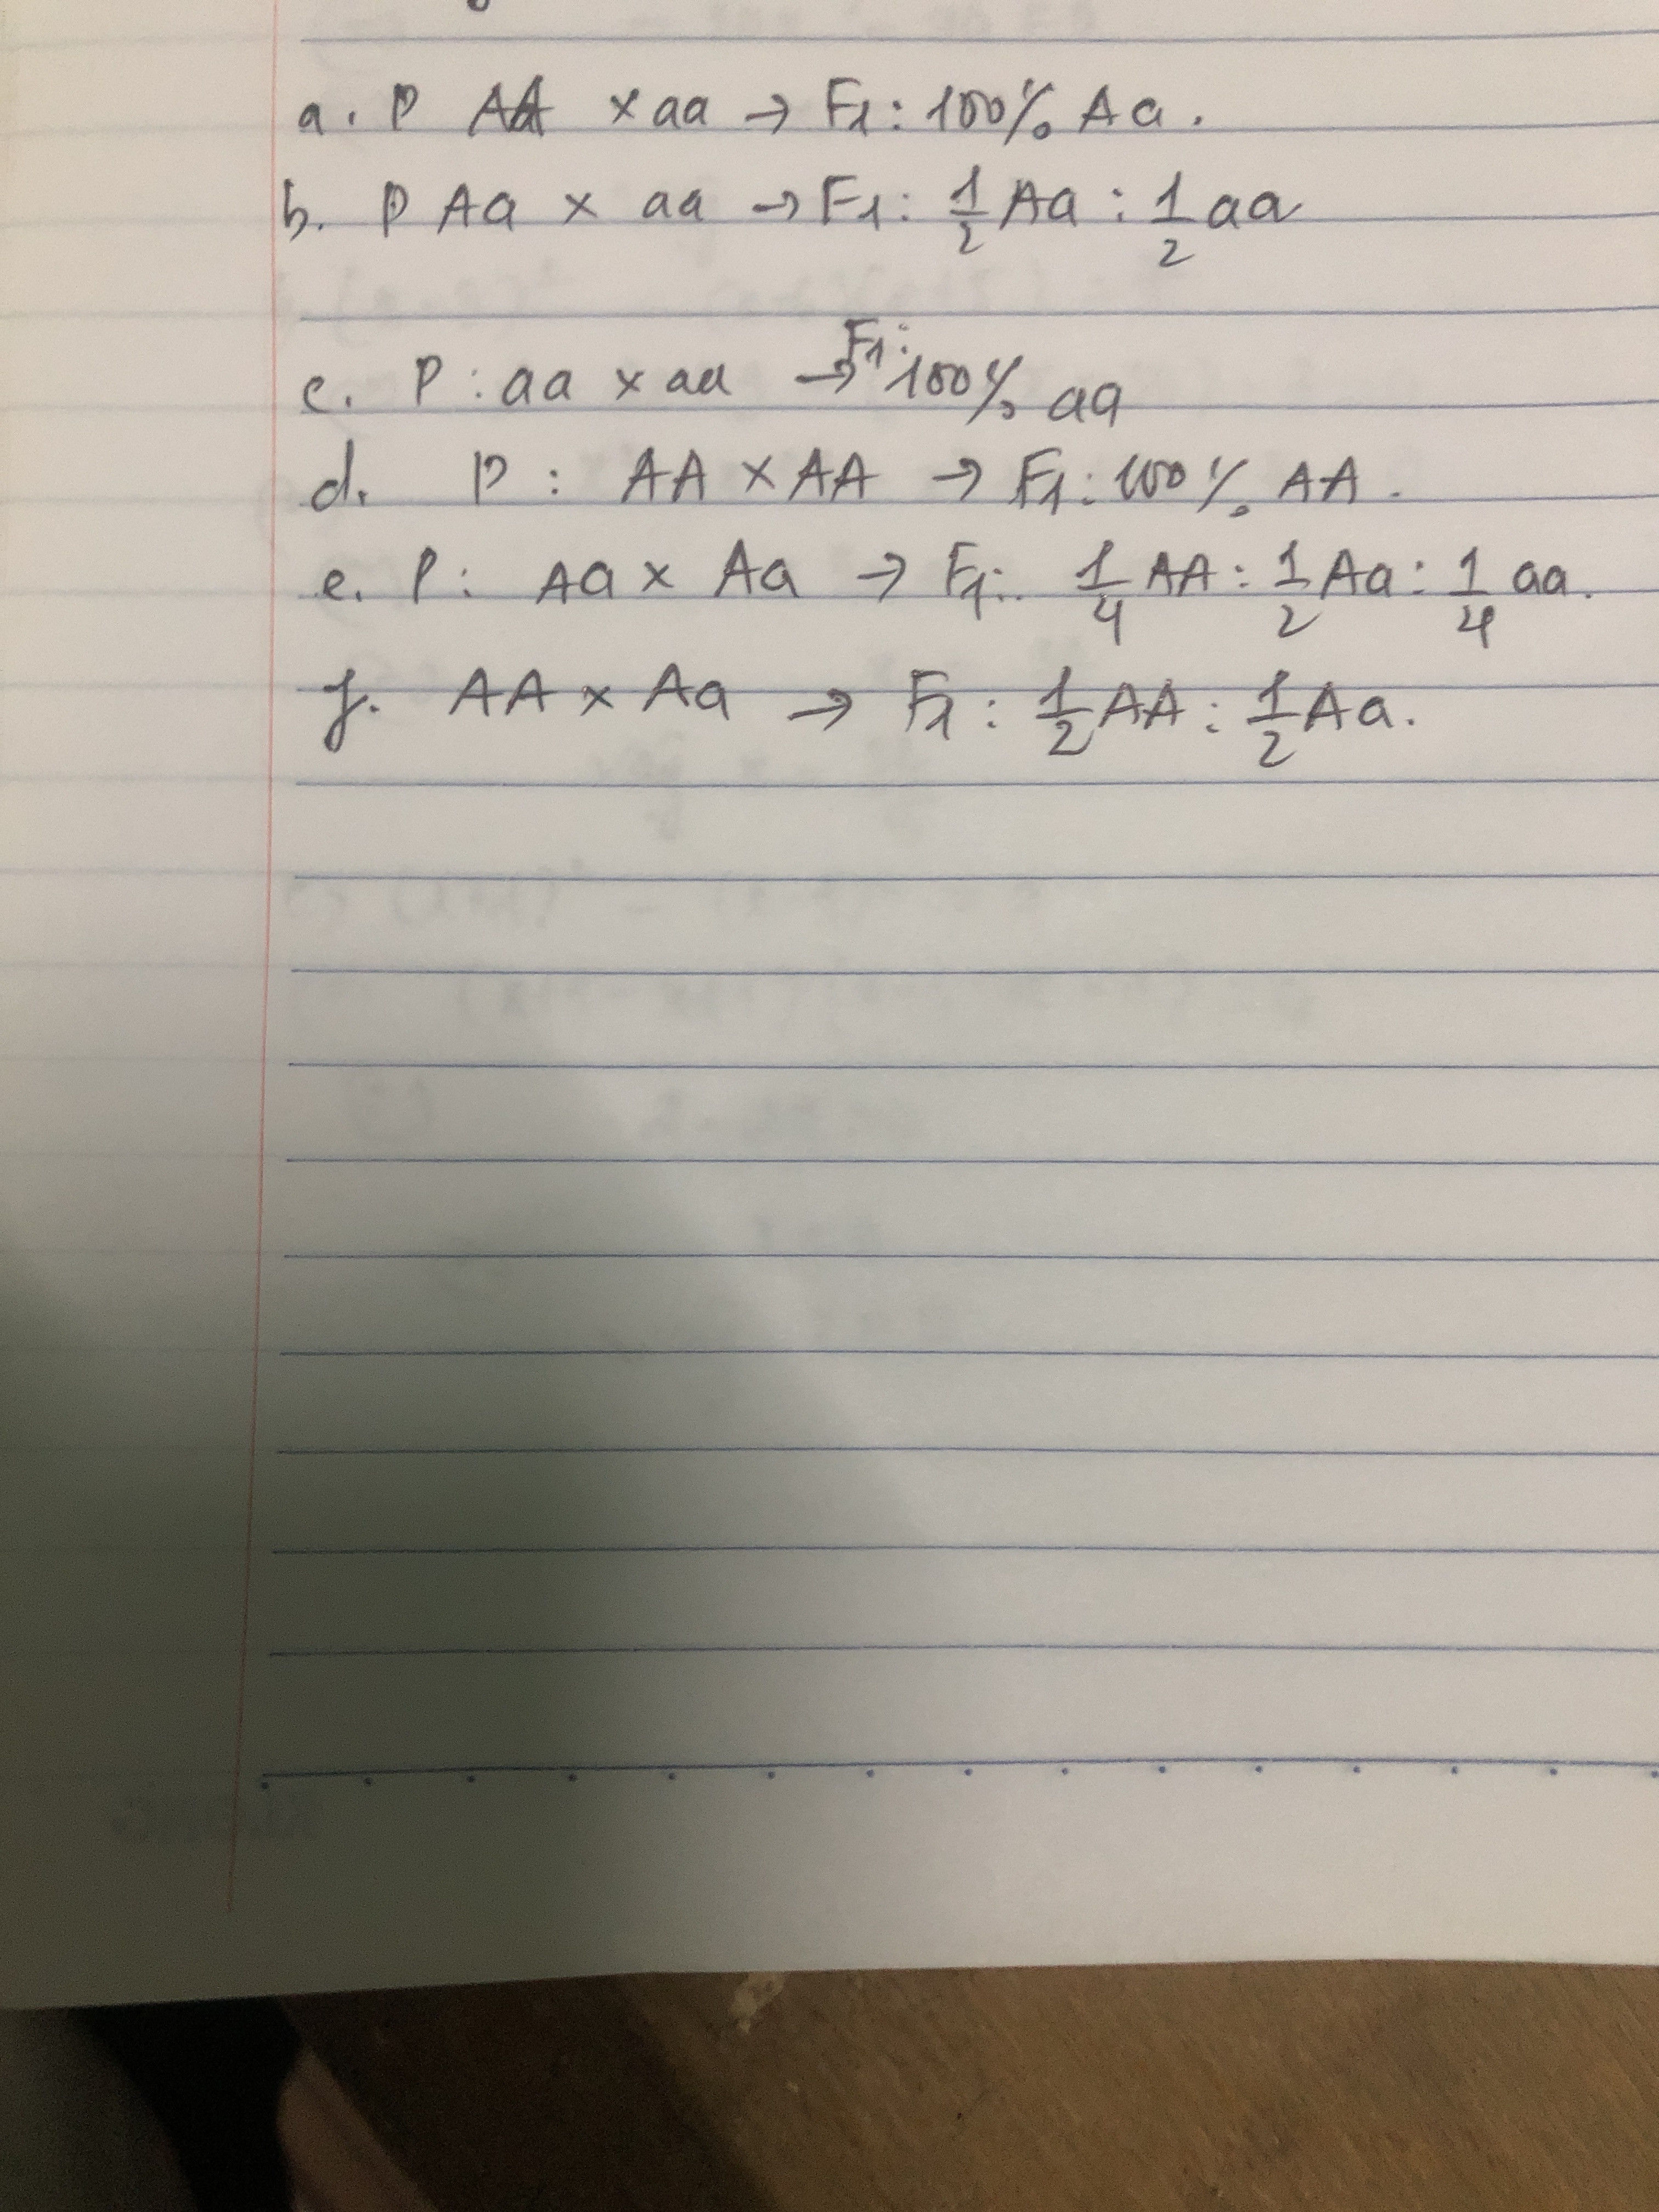 a. P AA x aa → F1: 100% Aa.
b. P Aa x aa → F1: 1/2 Aa : 1/2 aa
c. P : aa x aa → F1: 100% aa
d. P : AA x AA → F1: 100% AA.
e. P: Aa x Aa → F1: 1/4 AA : 1/2 Aa : 1/4 aa.
f. AA x Aa → F1 : 1/2 AA : 1/2 Aa.